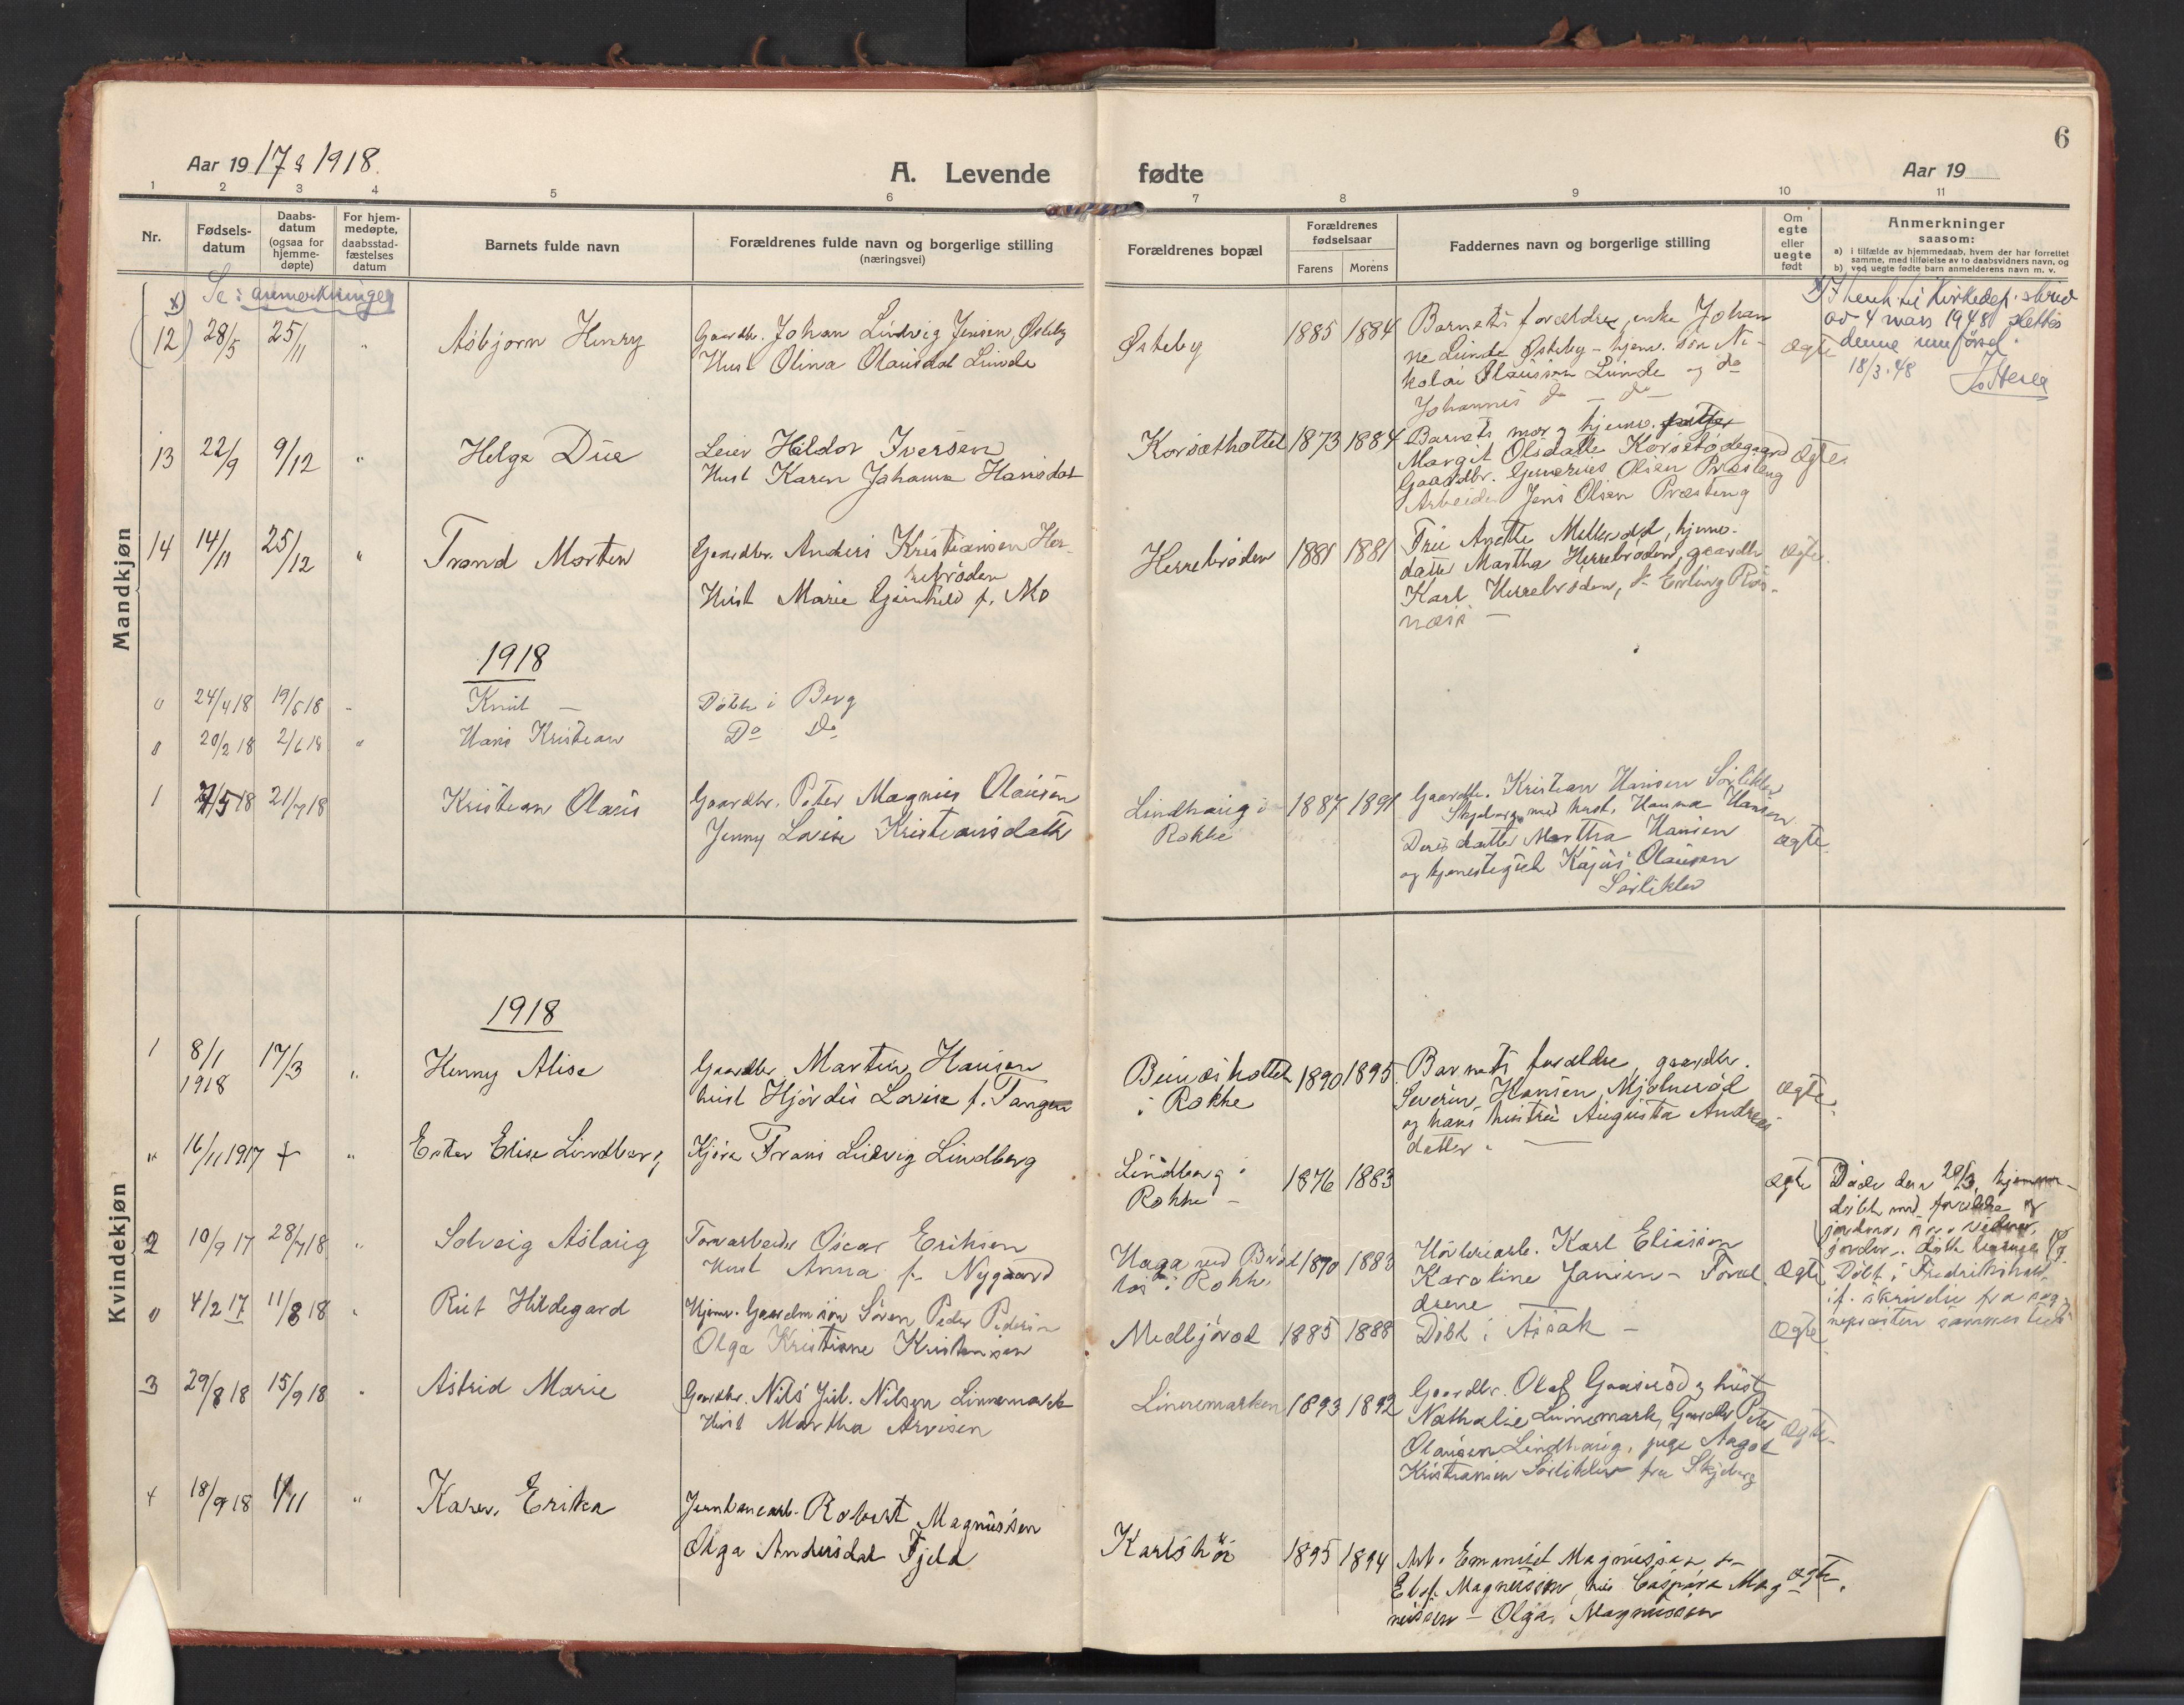 6
Aar 1917 & 1918.
A. Levende fødte
Aar 19
1 2 3 4 5 6 7 8 9 10 11
Nr.
Fødsels-
datum
Daabs-
datum
(ogsaa for
hjemme-
døpte)
For hjem-
medøpte,
daabsstad-
fæstelses
datum
Barnets fulde navn
Forældrenes fulde navn og borgerlige stilling
(næringsvei)
Forældrenes bopæl
Forældrenes
fødselsaar
Farens Morens
Faddernes navn og borgerlige stilling
Om
egte
eller
uegte
født
Anmerkninger
saasom:
a) i tilfælde av hjemmedaab, hvem der har forrettet
samme, med tilføielse av to daabsvidners navn, og
b) ved uegte fødte barn anmelderens navn m. v.
Mandkjøn
x) Se: anmerkninger
(12) 28/5 25/11 "
Asbjørn Henry
Gaardbr. Johan Ludvig Jensen Østeby
Hust Olina Olausdat Lunde
Østeby
1885 1884
Barnets forældre, enke Johan
ne Lunde Østeby – hjemv. søn Ni-
kolai Olaussen Lunde og do
Johannes do – do
ægte
av 4 mars 1948 slettes
denne innførsel.
18/3.48
13 22/9 9/12 "
Helge Due
Leier Hildor Iversen
Hust Karen Johanna Hansdat
Korsæthottet
1873 1884
Barnets mor, hjemv.
Margit Olsdatter Korsetødegaard
Gaardbr. Olsen Præsteng
Arbeider Jens Olsen Præsteng
ægte.
14 14/11 25/12 "
Trond Morten
Gaardbr. Anders Kristiansen Her-
rebrøden
Hust Marie Gjernhild f. Mo
Herrebrøden
1881 1881
Fru Anette Møllerød, hjemv.
datter Martha Herrebrøden, gaardbr
Karl Herrebrøden, do Erling Røs-
næss –
ægte.
1918
0 24/4 18 19/5 18 –
Knut –
Døbt i Berg
0 20/2 18 2/6 18 "
Hans Kristian
Do Do
1 4/5 18 21/7 18
Kristian Olaus
Gaardbr. Peter Magnus Olausen
Jenny Lovise Kristiansdatt
Lindhaug i
Rokke
1887 1891
Gaardbr. Kristian Hansen Sørlikler
Skjeberg, med hust. Hanna Hansen
Deres datter Martha Hansen
og tjenestegut Kajus Olausen
Sørlikler
ægte.
Kvindekjøn
1918
1 8/1 1918 17/3 "
Henny Alise
Gaardbr. Martin Hansen
hust Hjørdis Lovise f. Tangen
i Rokke
1890 1895
Barnets forældre, gaardbr.
Severin Hansen Mjølnerød
og hans hustru Augusta Andreas
datter.
ægte.
" 16/11 1917 + "
Ester Elise Lindberg
Kjøre Frans Ludvig Lindberg
Lindberg i
Rokke –
1876 1883
ægte
Døde den 20/3, hjemme-
døbt med forældre og
2 10/9 17 28/7 18 "
Solveig Aslaug
Torvarbeider Oscar Eriksen
Hust Anna f. Nygaard
Haga ved Brød
løs i Rokke
1890 1883
Karl Eliassen
Karoline Jansen – Foræl
drene
ægte
Døbt i Fredrikshald
if. skrivelse fra sog-
nepræsten sammesteds
0 4/2 17 11/8 18 "
Rut Hildegard
Hjemv. Gaardm. søn Søren Peder Pedersen
Olga Kristiane Kristensen
Medbjørød
1885 1888
Døbt i Aasak –
ægte
3 29/8 18 15/9 18 "
Astrid Marie
Gaardbr. Nils Jul. Nilsen Linnemark
Hust Martha Arvesen
Linnemarken
1893 1892
Gaardbr. Olaf Gaaserød og hust
Nathalie Linnemark, Gaardbr Peter
Olausen Lindhaug, pige Aagot
Kristiansen Sørlikler fra Skjeberg
ægte.
4 18/9 18 1/11 "
Karen Erika
Jernbanearb. Robert Magnussen
Olga Andersdat Fjeld
Karlshøi
1895 1894
Arb. Emanuel Magnussen –
Elis. Magnussen, Caspara Mag
nussen – Olga Magnussen
ægte.